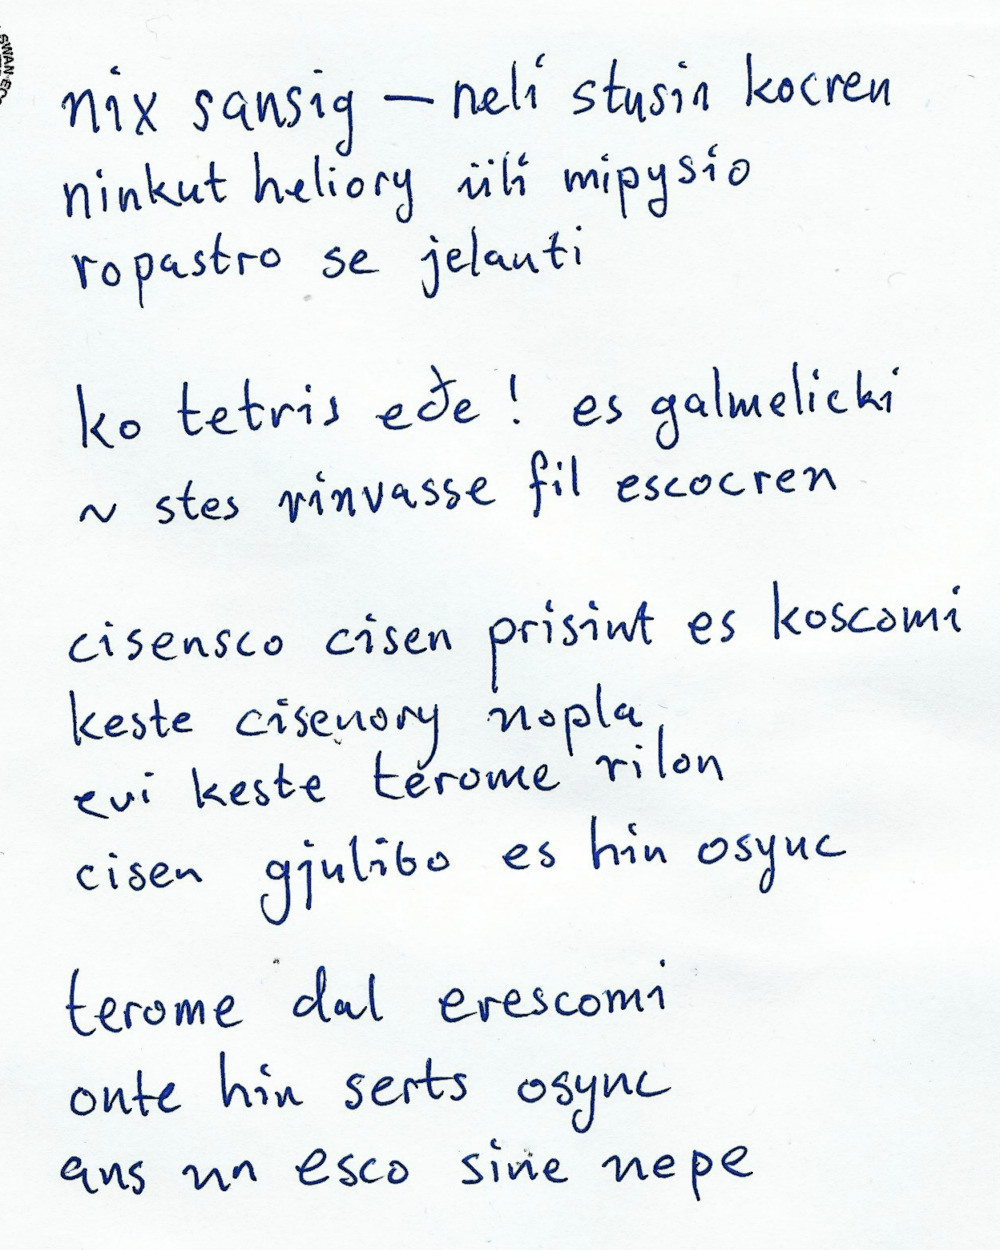 nix sansig — neli stusin kocren
ninkut heliory üli mipysio
ropastro se jelanti
ko tetris eðe! es galmelicki
~ stes rinvasse fil escocren
cisensco cisen prisint es koscomi
keste cisenory nopla,
evi keste terome rilon
cisen gjulibo es hin osync
terome dal erescomi
onte hin serts osync
ans un esco sine nepe